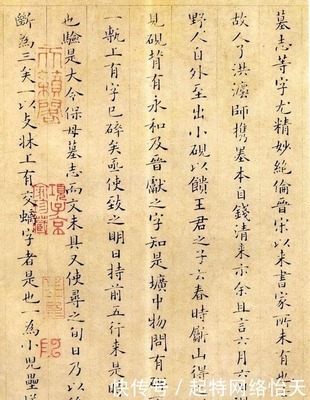 墓志等字尤精妙絕倫晉宋以來書家所未有也
故人了洪灋師攜墓本自錢清来示余且言六月六
野人自外至出小硯以饋王君之子云春時斸山得
見硯背有永和及晉獻之字知是壙中物問有
一甎上有字已碎矣亟使致之明日持前五行来是
也驗是大令保母墓志而文未具又使尋之旬日乃以
斷為三矣一以支牀上有交螭字者是也一為小兒壘
天籟閣
項子京家珍藏
快传号 / 起特网络怡天